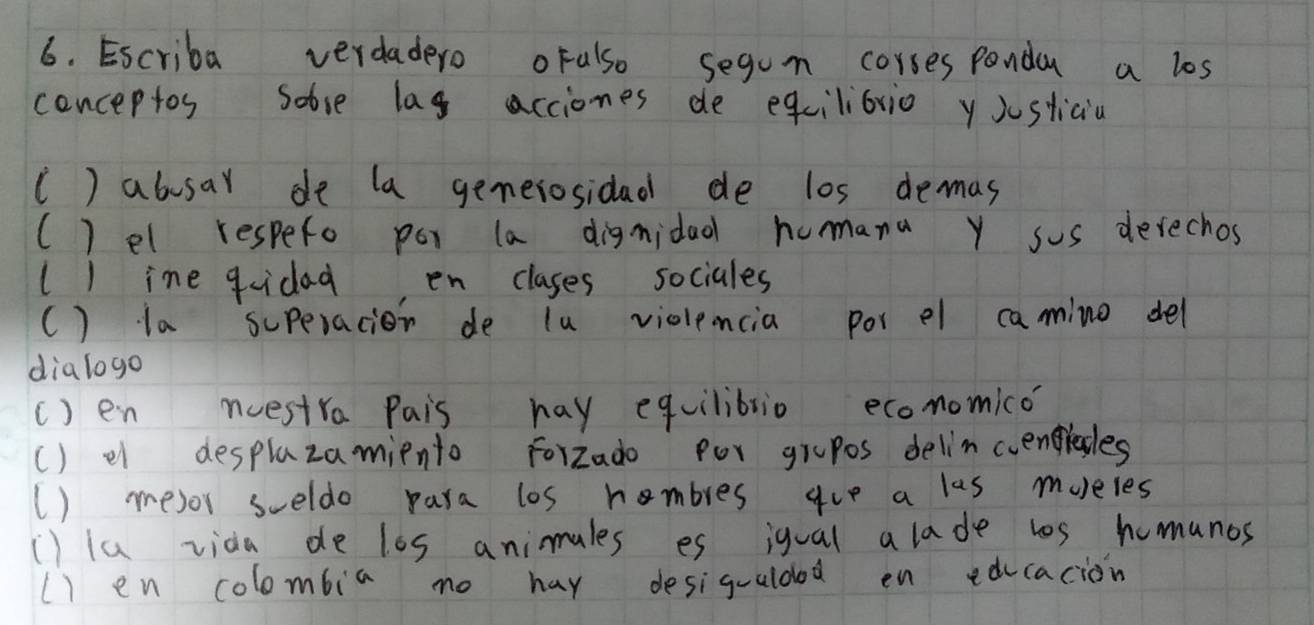 6. Escriba verdadero o Falso segun corresponda a los
conceptos sobre las acciones de equilibrio y Justicia
( ) abusar de la generosidad de los demas
( ) el respeto por la dignidad humana y sus derechos
( ) inequidad en clases sociales
( ) la superación de la violencia por el camino del
dialogo
( ) en nuestra Pais hay equilibrio economicó
( ) el desplazamiento Forzado por grupos delincuenciales
( ) mejor sueldo para los hombres que a las mujeres
( ) la vida de los animales es igual a la de los humanos
( ) en colombia no hay desigualdad en educación